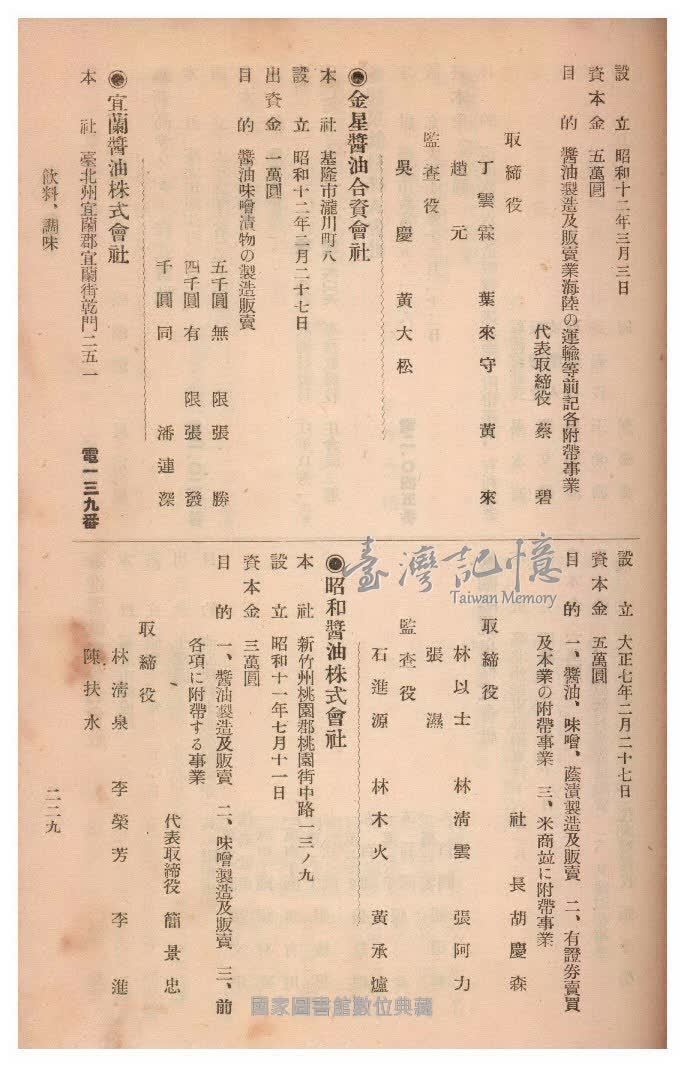 設立 昭和十二年三月三日
資本金 五萬圓
目的 醬油製造及販賣業海陸の運輸等前記各附帶事業
代表取締役 蔡碧
取締役
丁雲霖 葉來守 黃來
趙元
監査役
吳慶 黃大松
◉金星醬油合資會社
本社 基隆市瀧川町八
設立 昭和十二年二月二十七日
出資金 一萬圓
目的 醬油味噌漬物の製造販賣
五千圓 無限 張勝
四千圓 有限 張發
千圓 同 潘連深
◉宜蘭醬油株式會社
本社 臺北州宜蘭郡宜蘭街乾門二五一 電一三九番
飲料、調味
設立 大正七年二月二十七日
資本金 五萬圓
目的 一、醬油、味噌、蔭漬製造及販賣 二、有證券賣買
及本業の附帶事業 三、米商竝に附帶事業
社長 胡慶森
取締役
林以士 林淸雲 張阿力
張濕
監査役
石進源 林木火 黃承爐
◉昭和醬油株式會社
本社 新竹州桃園郡桃園街中路一三ノ九
設立 昭和十一年七月十一日
資本金 三萬圓
目的 一、醬油製造及販賣 二、味噌製造及販賣 三、前
各項に附帶する事業
代表取締役 簡景忠
取締役
林淸泉 李榮芳 李進
陳扶水
二二九
臺灣記憶
Taiwan Memory
國家圖書館數位典藏